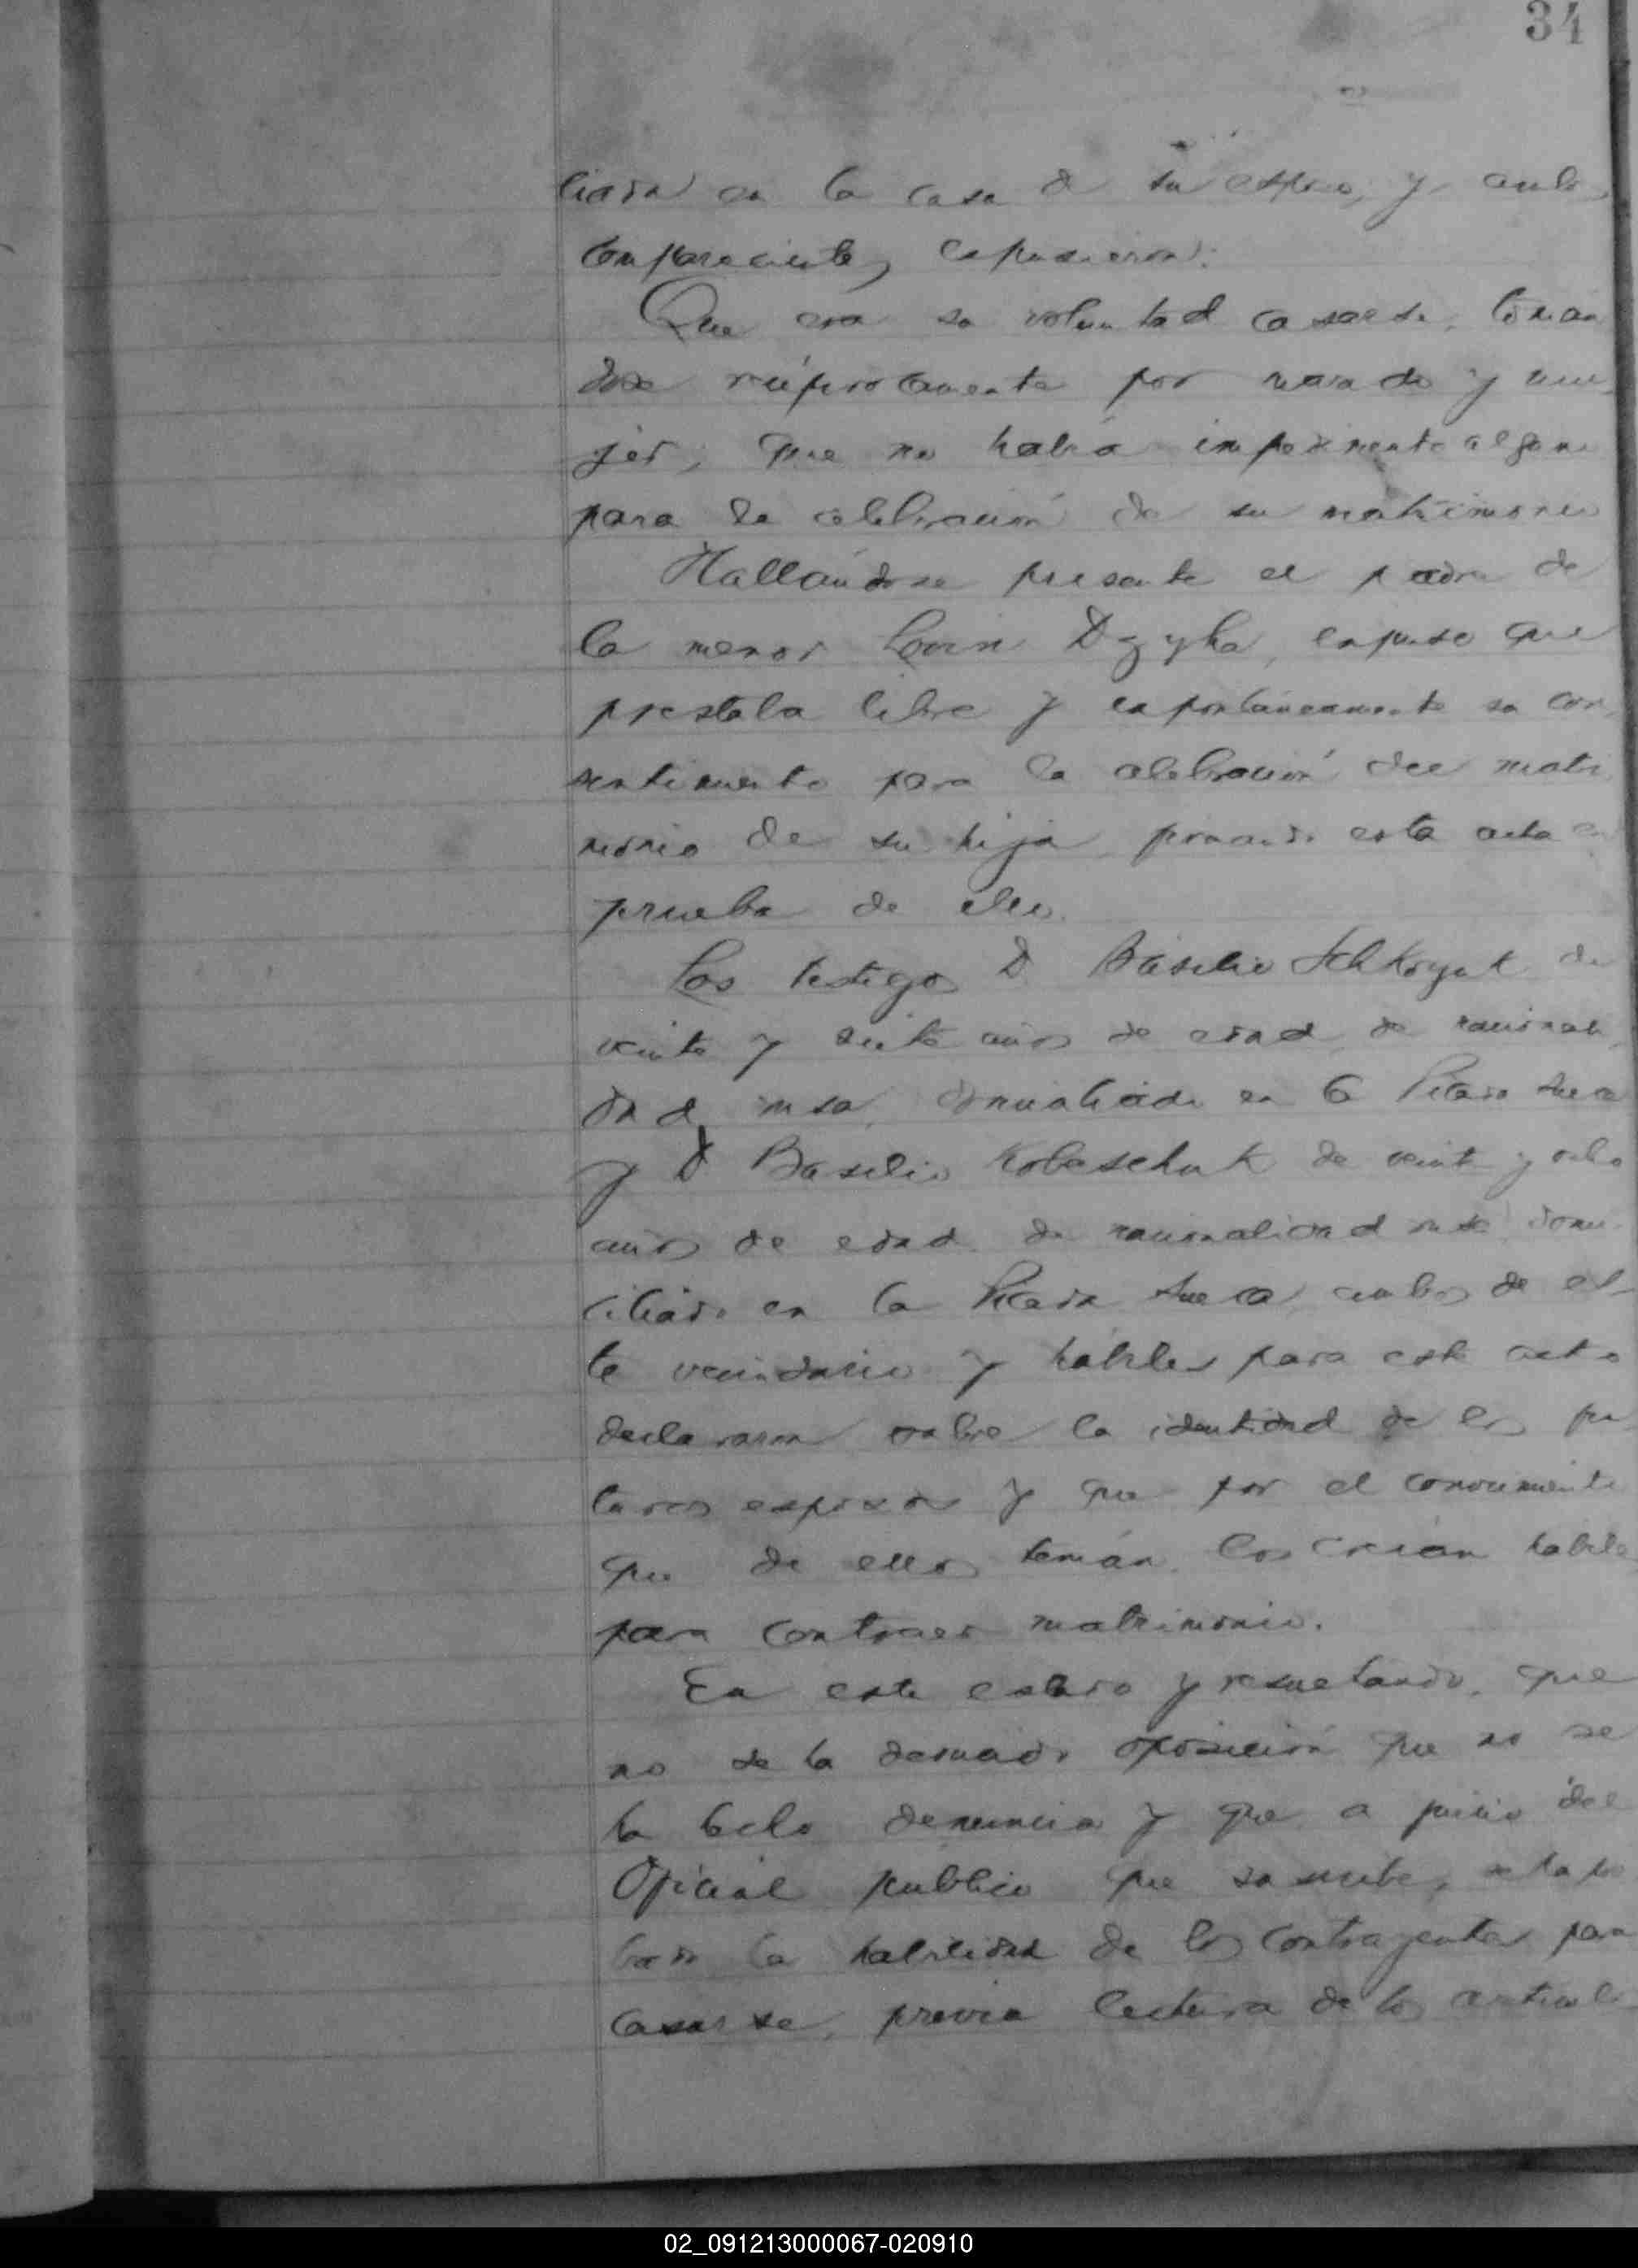 34
liada en la casa de su esposo, y ambos
comparecientes, expusieron:
Que era su voluntad casarse, toman
dose reciprocamente por marido y mu
jer, que no había impedimento alguno
para la celebración de su matrimonio
Hallándose presente el padre de
la menor Dzyha, expuso que
prestaba libre y espontáneamente su con
sentimiento para la celebración del matri
monio de su hija firmando esta acta en
prueba de ello.
Los testigos D. Basilio Schkoyak de
veinte y siete años de edad, de nacionali
dad rusa, domiciliado en la Picada Sueca
y D. Basilio Kobeschuk de veinte y ocho
años de edad de nacionalidad rusa, domi
ciliado en la Picada Sueca, ambos de es-
te vecindario y habiles para este acto
declararon sobre la identidad de los fu
turos esposos y que por el conocimiento
que de ellos tenían, los creían habiles
para contraer matrimonio.
En este estado y resultando, que
no se ha deducido oposición que no se
ha hecho denuncia y que a juicio del
Oficial publico que suscribe, se ha pro
bado la habilidad de los contrayentes para
casarse, previa lectura de los articulo
02_091213000067-020910